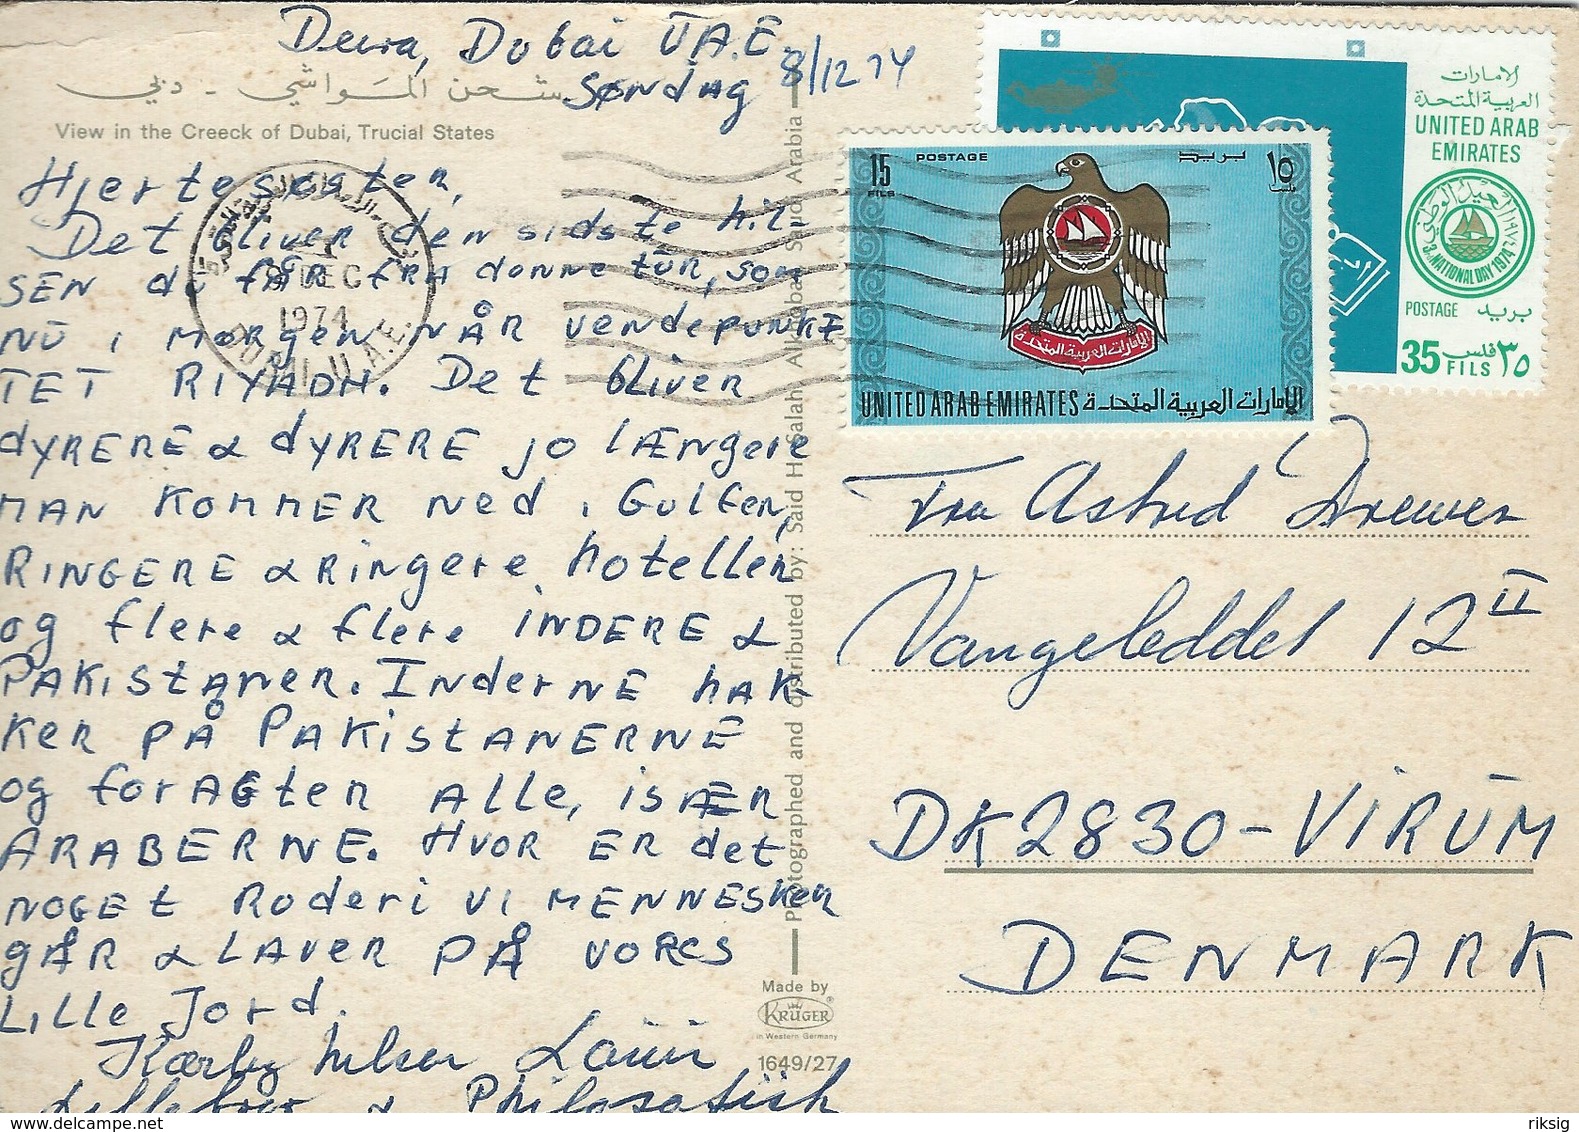 Deira, Dubai U.A.E.
Søndag 8/12 74
شحن المواشي - دبي
View in the Creeck of Dubai, Trucial States
Hjertesøster,
Det bliver den sidste hil
SEN du FÅR FRA denne tur, som
NU i MORGEN NÅR vendepunkt
TET RIYADH. Det bliver
dYRERE & dYRERE jo LÆNgere
MAN KOMMER Ned i Golfen,
RINGERE & Ringere hoteller
og flere & flere INDERE &
PAKistaner. Inderne hak
ker PÅ PAKistANERNE
og forAGter Alle, isÆR
ARABERNE. Hvor ER det
NOGET Roderi VI MENNESKer
gÅR & LAver PÅ VORES
LILLE Jord.
Kærlig hilsen
Lillebror & Philosofisk
Photographed and distributed by: Said H. Salah, Alkhobar, Saudi Arabia
Made by
KRÜGER
in Western Germany
1649/27
DEC
1974
DUBAI U.A.E.
15
FILS
POSTAGE
بريد
١٥
فلس
الامارات العربية المتحدة
UNITED ARAB EMIRATES الامارات العربية المتحدة
الامارات
العربية المتحدة
UNITED ARAB
EMIRATES
العيد الوطني
3rd NATIONAL DAY 1974
POSTAGE بريد
35 FILS فلس ٣٥
Fra Astrid Drewer
Vangeleddet 12 II
DK 2830 - VIRUM
DENMARK
riksig